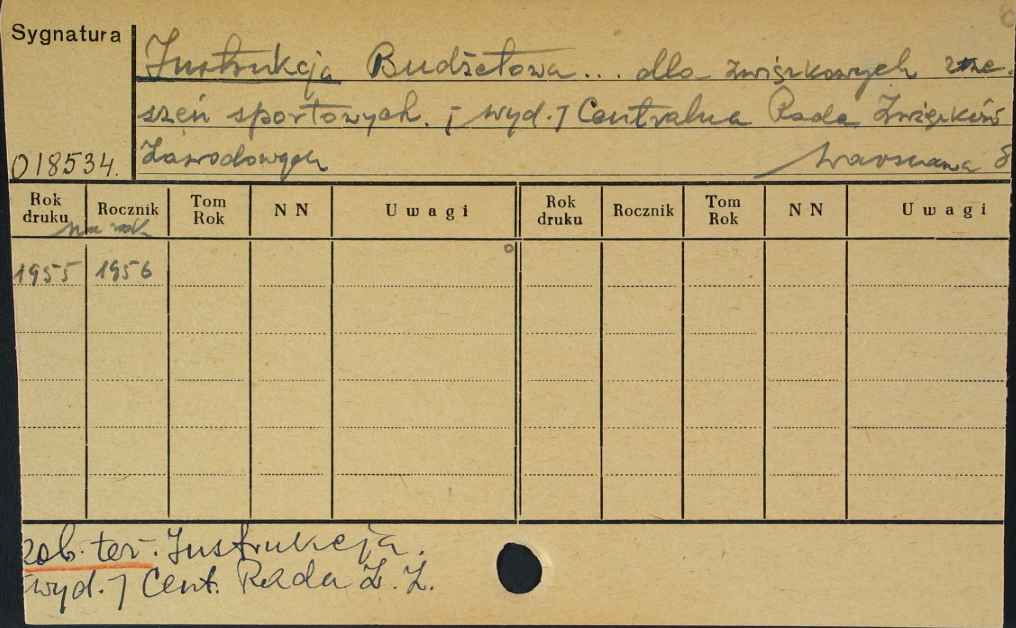 Sygnatura
Instrukcja Budżetowa... dla związkowych zrze-
szeń sportowych. [wyd.] Centralna Rada Związków
018534. Zawodowych Warszawa 8
Rok druku Rocznik Tom Rok N N Uwagi Rok druku Rocznik Tom Rok N N Uwagi
na rok
1955 1956
zob. też. Instrukcja.
[wyd.] Cent. Rada Z. Z.